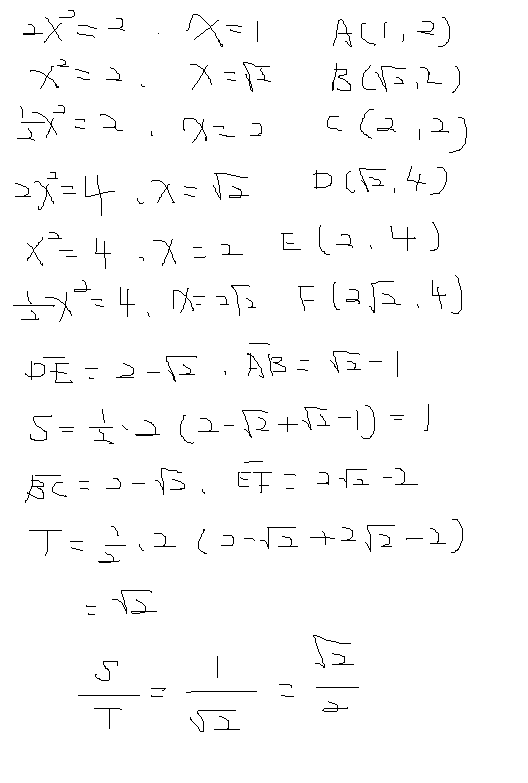 2x²=2 . x=1 A(1,2)
x²=2. x=√2 B(√2,2)
½x²=2 . x=2 C(2,2)
2x²=4 .x=√2 D(√2,4)
x²=4 .x=2 E(2.4)
½x²=4. x=2√2 F(2√2.4)
D̅E̅=2-√2 . A̅B̅=√2-1
S=½·2(2-√2+√2-1)=1
B̅C̅=2-√2. E̅F̅=2√2-2
T=½.2(2-√2+2√2-2)
=√2
S/T=1/√2=√2/2